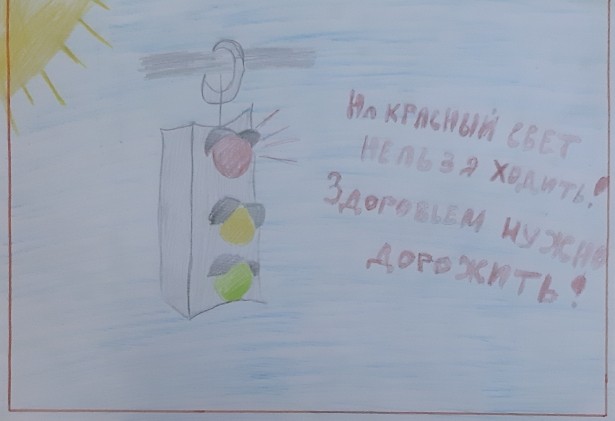 На КРАСНЫЙ СВЕТ
НЕЛЬЗЯ ХОДИТЬ!
ЗДОРОВЬЕМ НУЖНО
ДОРОЖИТЬ!